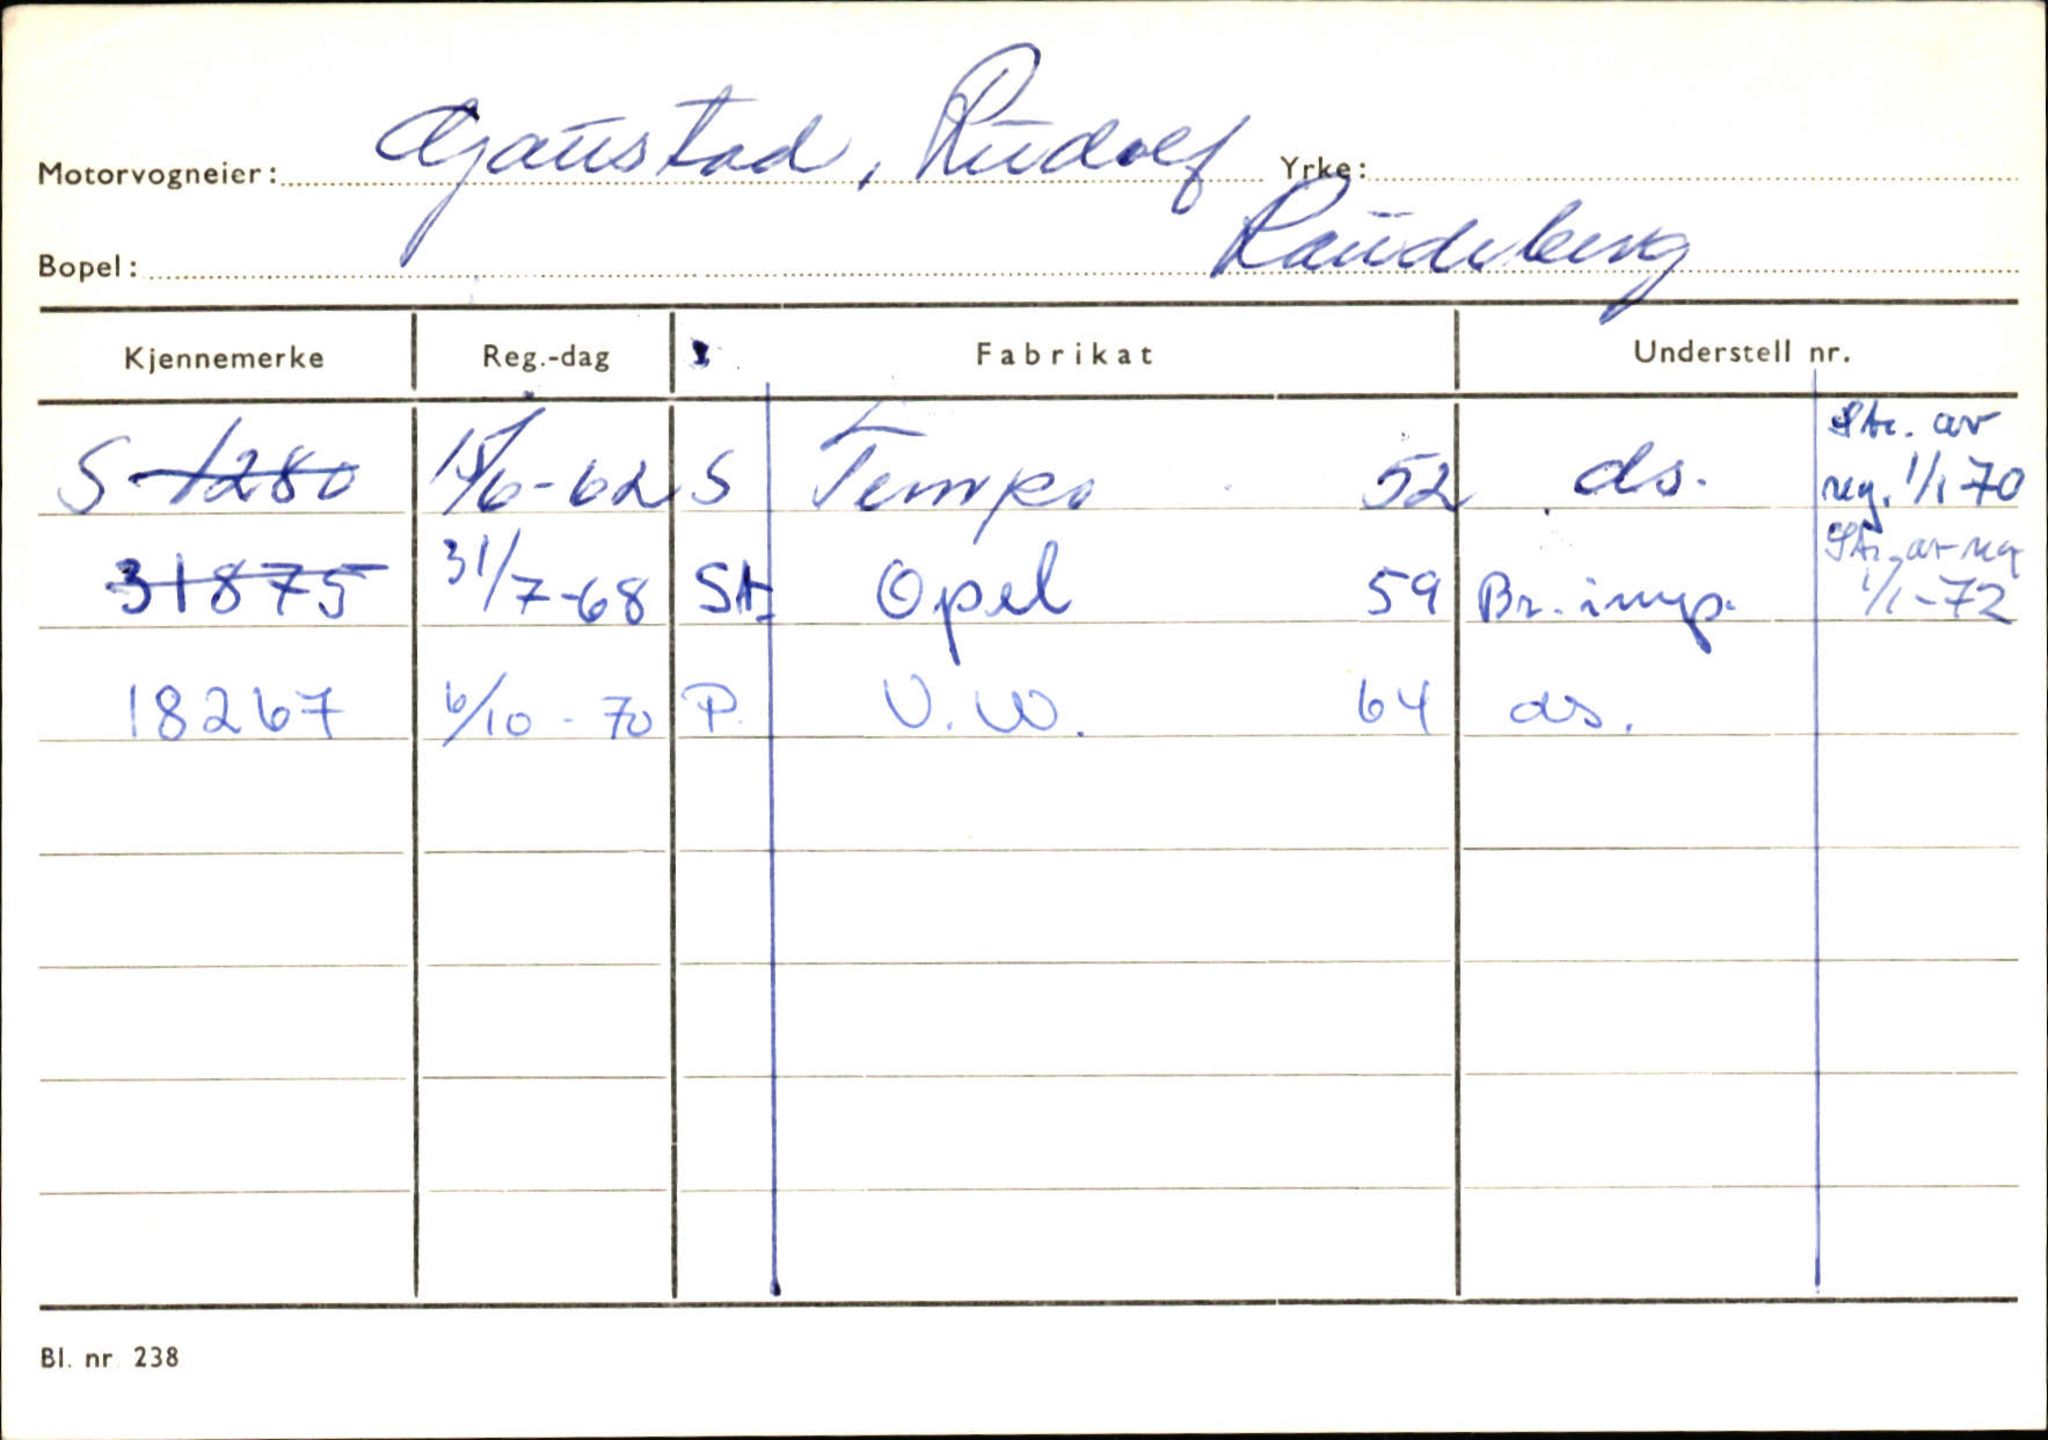 Motorvogneier: Gjaustad, Rudolf Yrke:
Bopel: Raudeberg
Kjennemerke Reg.-dag Fabrikat Understell nr.
S-1280 15/6-62 S Tempo 52 ds. Str. av reg. 1/1 70
31875 31/7-68 St. Opel 59 Br. imp. Str. av reg 1/1-72
18267 6/10-70 P. V.W. 64 ds.
Bl. nr 238